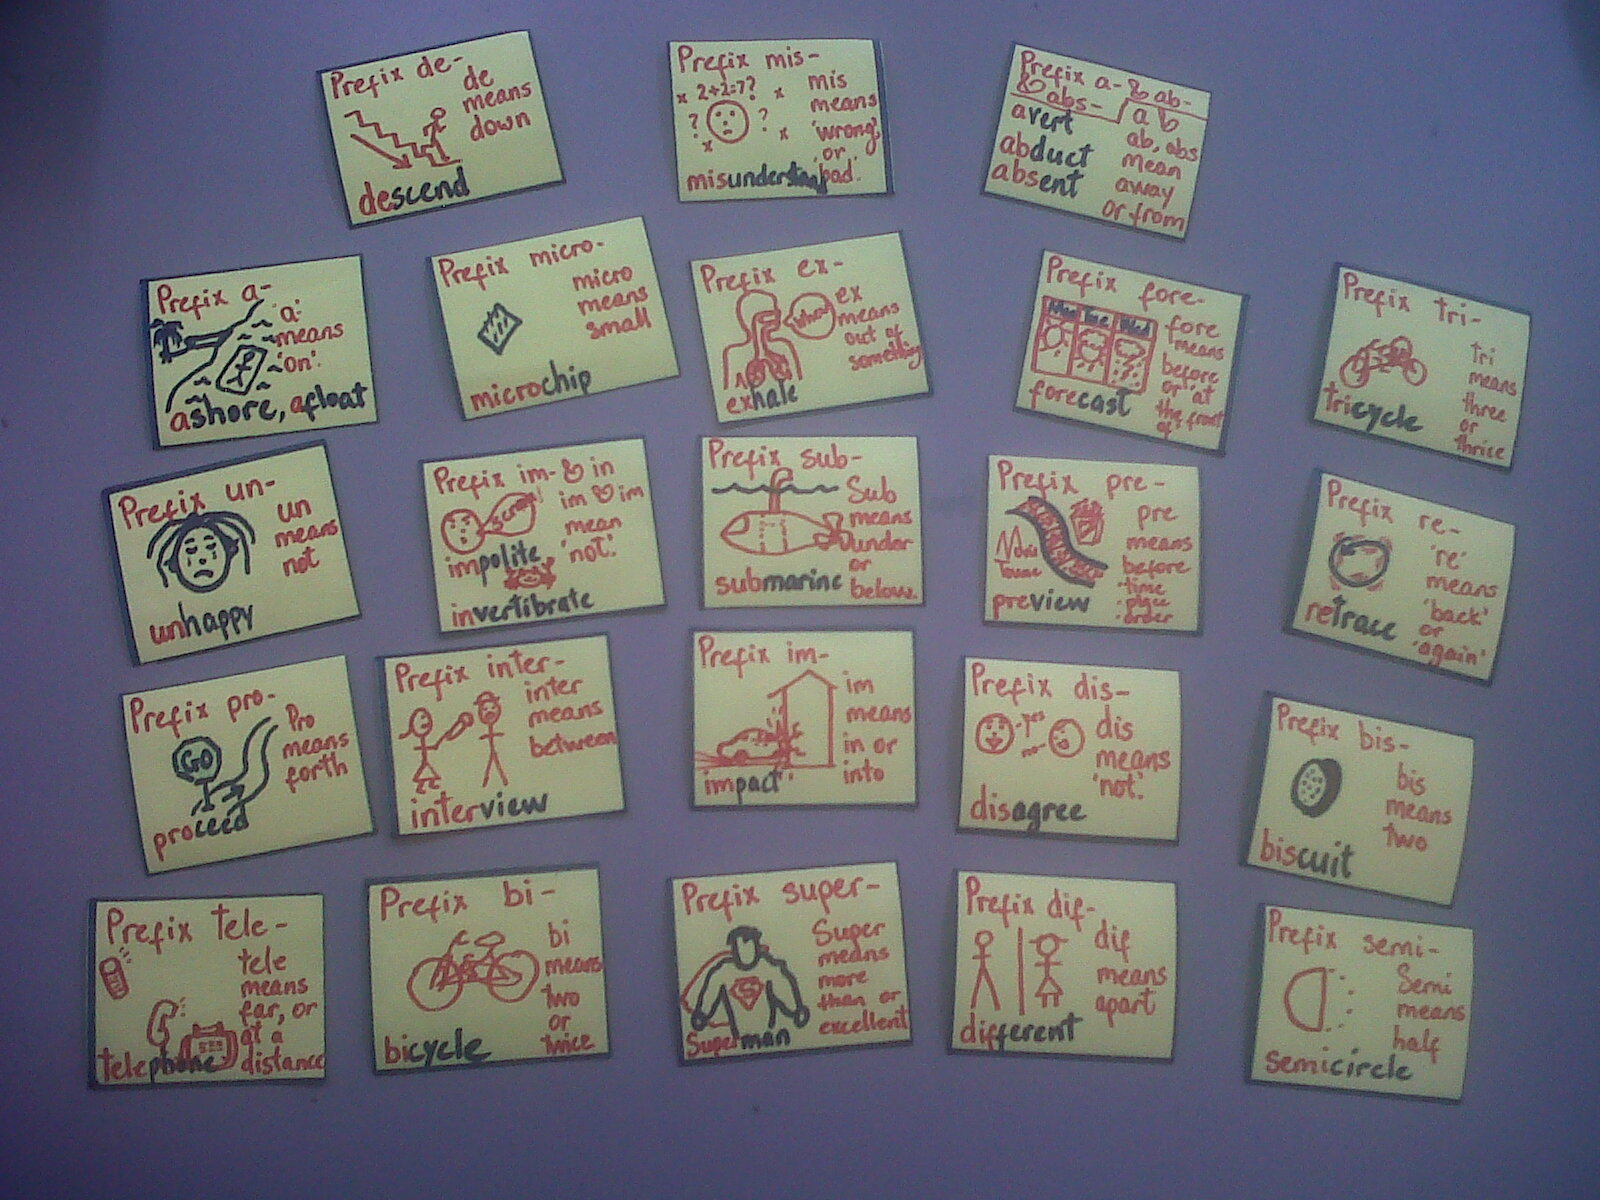 Prefix de-
de
means
down
descend
Prefix mis-
2+2=7?
mis
means
'wrong',
or
'bad'.
misunderstand
Prefix a- & ab-
& abs-
a &
ab, abs
mean
away
or from
avert
abduct
absent
Prefix a-
'a'
means
'on'.
ashore, afloat
Prefix micro-
micro
means
small
microchip
Prefix ex-
ex
means
out of
something
exhale
Prefix fore-
Mon Tue Wed
fore
means
before
or 'at
the front
of'
forecast
Prefix tri-
tri
means
three
or
thrice
tricycle
Prefix un-
un
means
not
unhappy
Prefix im- & in
im & im
mean
'not'.
impolite
invertibrate
Prefix sub-
Sub
means
under
or
below.
submarine
Prefix pre-
pre
means
before
'time
'place
'order
preview
Prefix re-
're'
means
'back'
or
'again'
retrace
Prefix pro-
GO
Pro
means
forth
proceed
Prefix inter-
inter
means
between
interview
Prefix im-
im
means
in or
into
impact
Prefix dis-
yes
no
dis
means
'not'.
disagree
Prefix bis-
bis
means
two
biscuit
Prefix tele-
tele
means
far, or
at a
distance
telephone
Prefix bi-
bi
means
two
or
twice
bicycle
Prefix super-
Super
means
more
than or
excellent
S
Superman
Prefix dif-
dif
means
apart
different
Prefix semi-
Semi
means
half
semicircle